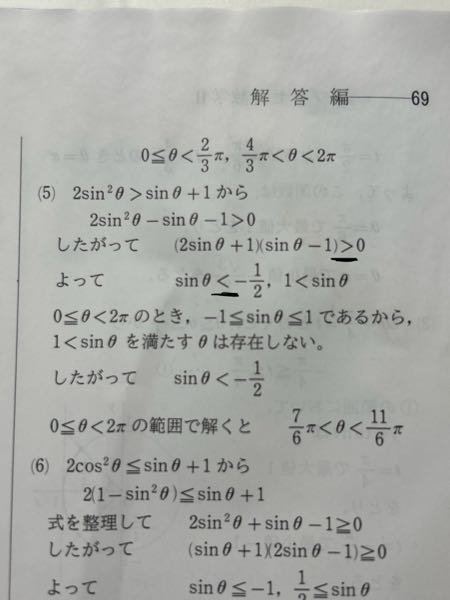 解答編――69
0≦θ<2/3π, 4/3π<θ<2π
(5) 2sin²θ>sinθ+1から
2sin²θ−sinθ−1>0
したがって (2sinθ+1)(sinθ−1)>0
よって sinθ<−1/2, 1<sinθ
0≦θ<2πのとき, −1≦sinθ≦1であるから,
1<sinθを満たすθは存在しない。
したがって sinθ<−1/2
0≦θ<2πの範囲で解くと 7/6π<θ<11/6π
(6) 2cos²θ≦sinθ+1から
2(1−sin²θ)≦sinθ+1
式を整理して 2sin²θ+sinθ−1≧0
したがって (sinθ+1)(2sinθ−1)≧0
よって sinθ≦−1, 1/2≦sinθ